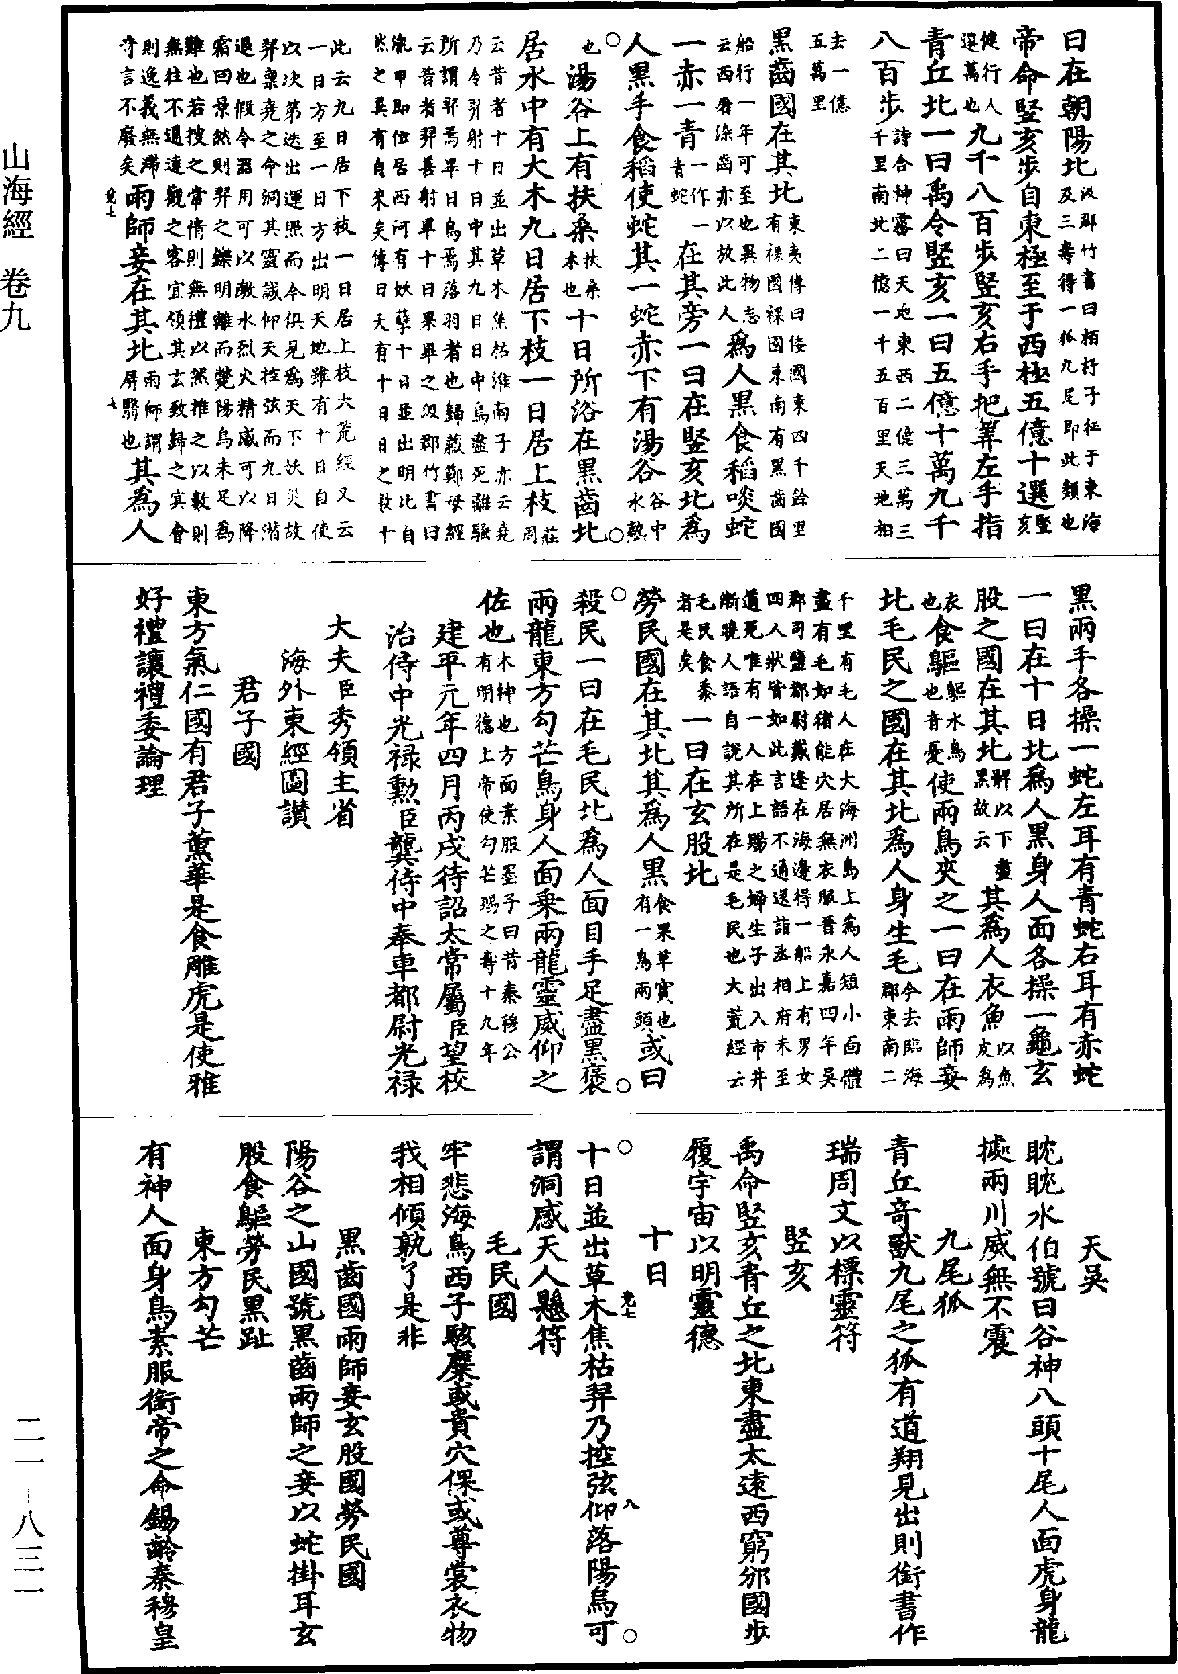 曰在朝陽北汲郡竹書曰栢杼子征于東海及三壽得一狐九尾即此類也
帝命豎亥步自東極至于西極五億十選豎亥
健行人選萬也九千八百步豎亥右手把筭左手指
青丘北一曰禹令豎亥一曰五億十萬九千
八百步詩含神霧曰天地東西二億三萬三千里南北二億一千五百里天地相
去一億五萬里
黑齒國在其北東夷傳曰倭國東四千餘里有裸國裸國東南有黑齒國
船行一年可至也異物志云西屠染齒亦以放此人為人黑食稻啖蛇
一赤一青一作一青蛇在其旁一曰在豎亥北為
人黑手食稻使蛇其一蛇赤下有湯谷谷中水熱
也湯谷上有扶桑扶桑木也十日所浴在黑齒北
居水中有大木九日居下枝一日居上枝莊周
云昔者十日並出草木焦枯淮南子亦云堯
乃令羿射十日中其九日日中烏盡死離騷
所謂羿焉畢日烏焉落羽者也歸藏鄭母經
云昔者羿善射畢十日果畢之汲郡竹書曰
胤甲即位居西河有妖孽十日並出明此自
然之異有自來矣傳曰天有十日日之數十
此云九日居下枝一日居上枝大荒經又云
一日方至一日方出明天地雖有十日自使
以次第迭出運照而今俱見為天下妖災故
羿稟堯之令洞其靈誠仰天控弦而九日潛
退也假令器用可以激水烈火精感可以降
霜回景然則羿之鑠明離而斃陽烏未足為
難也若搜之常情則無禮以然推之以數則
無往不通達觀之客宜領其玄致歸之冥會
則逸義無滯奇言不廢矣雨師妾在其北雨師謂屏翳也其為人
兜七
七
黑兩手各操一蛇左耳有青蛇右耳有赤蛇
一曰在十日北為人黑身人面各操一龜玄
股之國在其北髀以下盡黑故云其為人衣魚以魚皮為
衣也食䳼䳼水鳥也音憂使兩鳥夾之一曰在雨師妾
北毛民之國在其北為人身生毛今去臨海郡東南二
千里有毛人在大海洲島上為人短小面體
盡有毛如猪能穴居無衣服晉永嘉四年吳
郡司鹽都尉戴逢在海邊得一船上有男女
四人狀皆如此言語不通送詣丞相府未至
道死唯有一人在上賜之婦生子出入市井
漸曉人語自說其所在是毛民也大荒經云
毛民食黍者是矣一曰在玄股北
勞民國在其北其為人黑食果草實也有一鳥兩頭或曰
殺民一曰在毛民北為人面目手足盡黑褒
兩龍東方勾芒鳥身人面乘兩龍靈威仰之
佐也木神也方面素服墨子曰昔秦穆公有明德上帝使勾芒賜之壽十九年
建平元年四月丙戌待詔太常屬臣望校
治侍中光祿勲臣龔侍中奉車都尉光祿
大夫臣秀領主省
海外東經圖讃
君子國
東方氣仁國有君子薰華是食雕虎是使雅
好禮讓禮委論理
天吳
眈眈水伯號曰谷神八頭十尾人面虎身龍
據兩川威無不震
九尾狐
青丘奇獸九尾之狐有道翔見出則銜書作
瑞周文以標靈符
豎亥
禹命豎亥青丘之北東盡太遠西窮邠國步
履宇宙以明靈德
十日
十日並出草木焦枯羿乃控弦仰落陽烏可
謂洞感天人懸符
兜七
八
毛民國
牢悲海鳥西子駭麋或貴穴倮或尊裳衣物
我相傾孰了是非
黑齒國雨師妾玄股國勞民國
陽谷之山國號黑齒雨師之妾以蛇掛耳玄
股食䳼勞民黑趾
東方勾芒
有神人面身鳥素服銜帝之命錫齡秦穆皇
山海經 卷九
二一-八三一